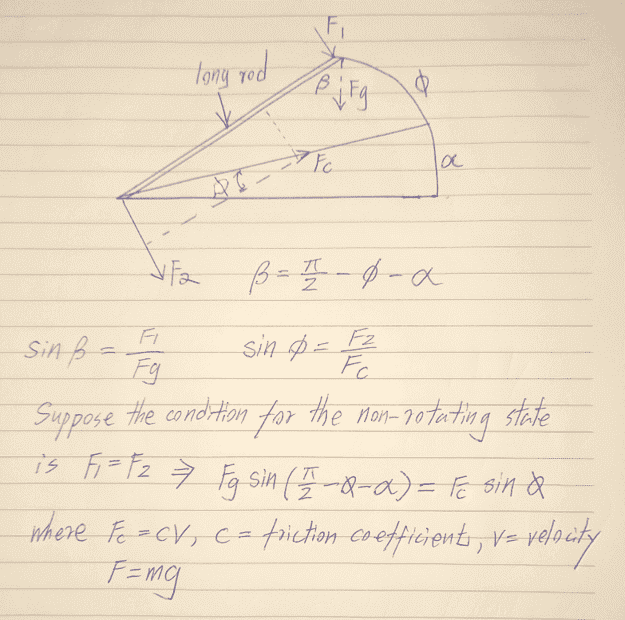 F₁
long rod
β
Fg
ϕ
Fc
α
ϕ
F₂
β = π/2 - ϕ - α
sin β = F₁/Fg sin ϕ = F₂/Fc
Suppose the condition for the non-rotating state
is F₁ = F₂ ⇒ Fg sin(π/2 - ϕ - α) = Fc sin ϕ
where Fc = cv, c = friction coefficient, v = velocity
F = mg